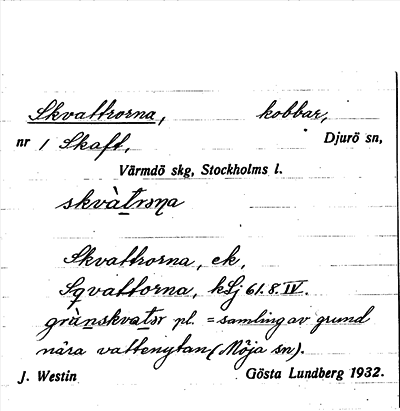 Skvattrorna, kobbar,
nr 1 Skaft, Djurö sn,
Värmdö skg, Stockholms l.
skvàtrsṇa
Skvattrorna, ek,
Sqvattorna, kSj 61.8.IV.
grùnskvatsr pl. = samling av grund
nära vattenytan (Möja sn).
J. Westin Gösta Lundberg 1932.